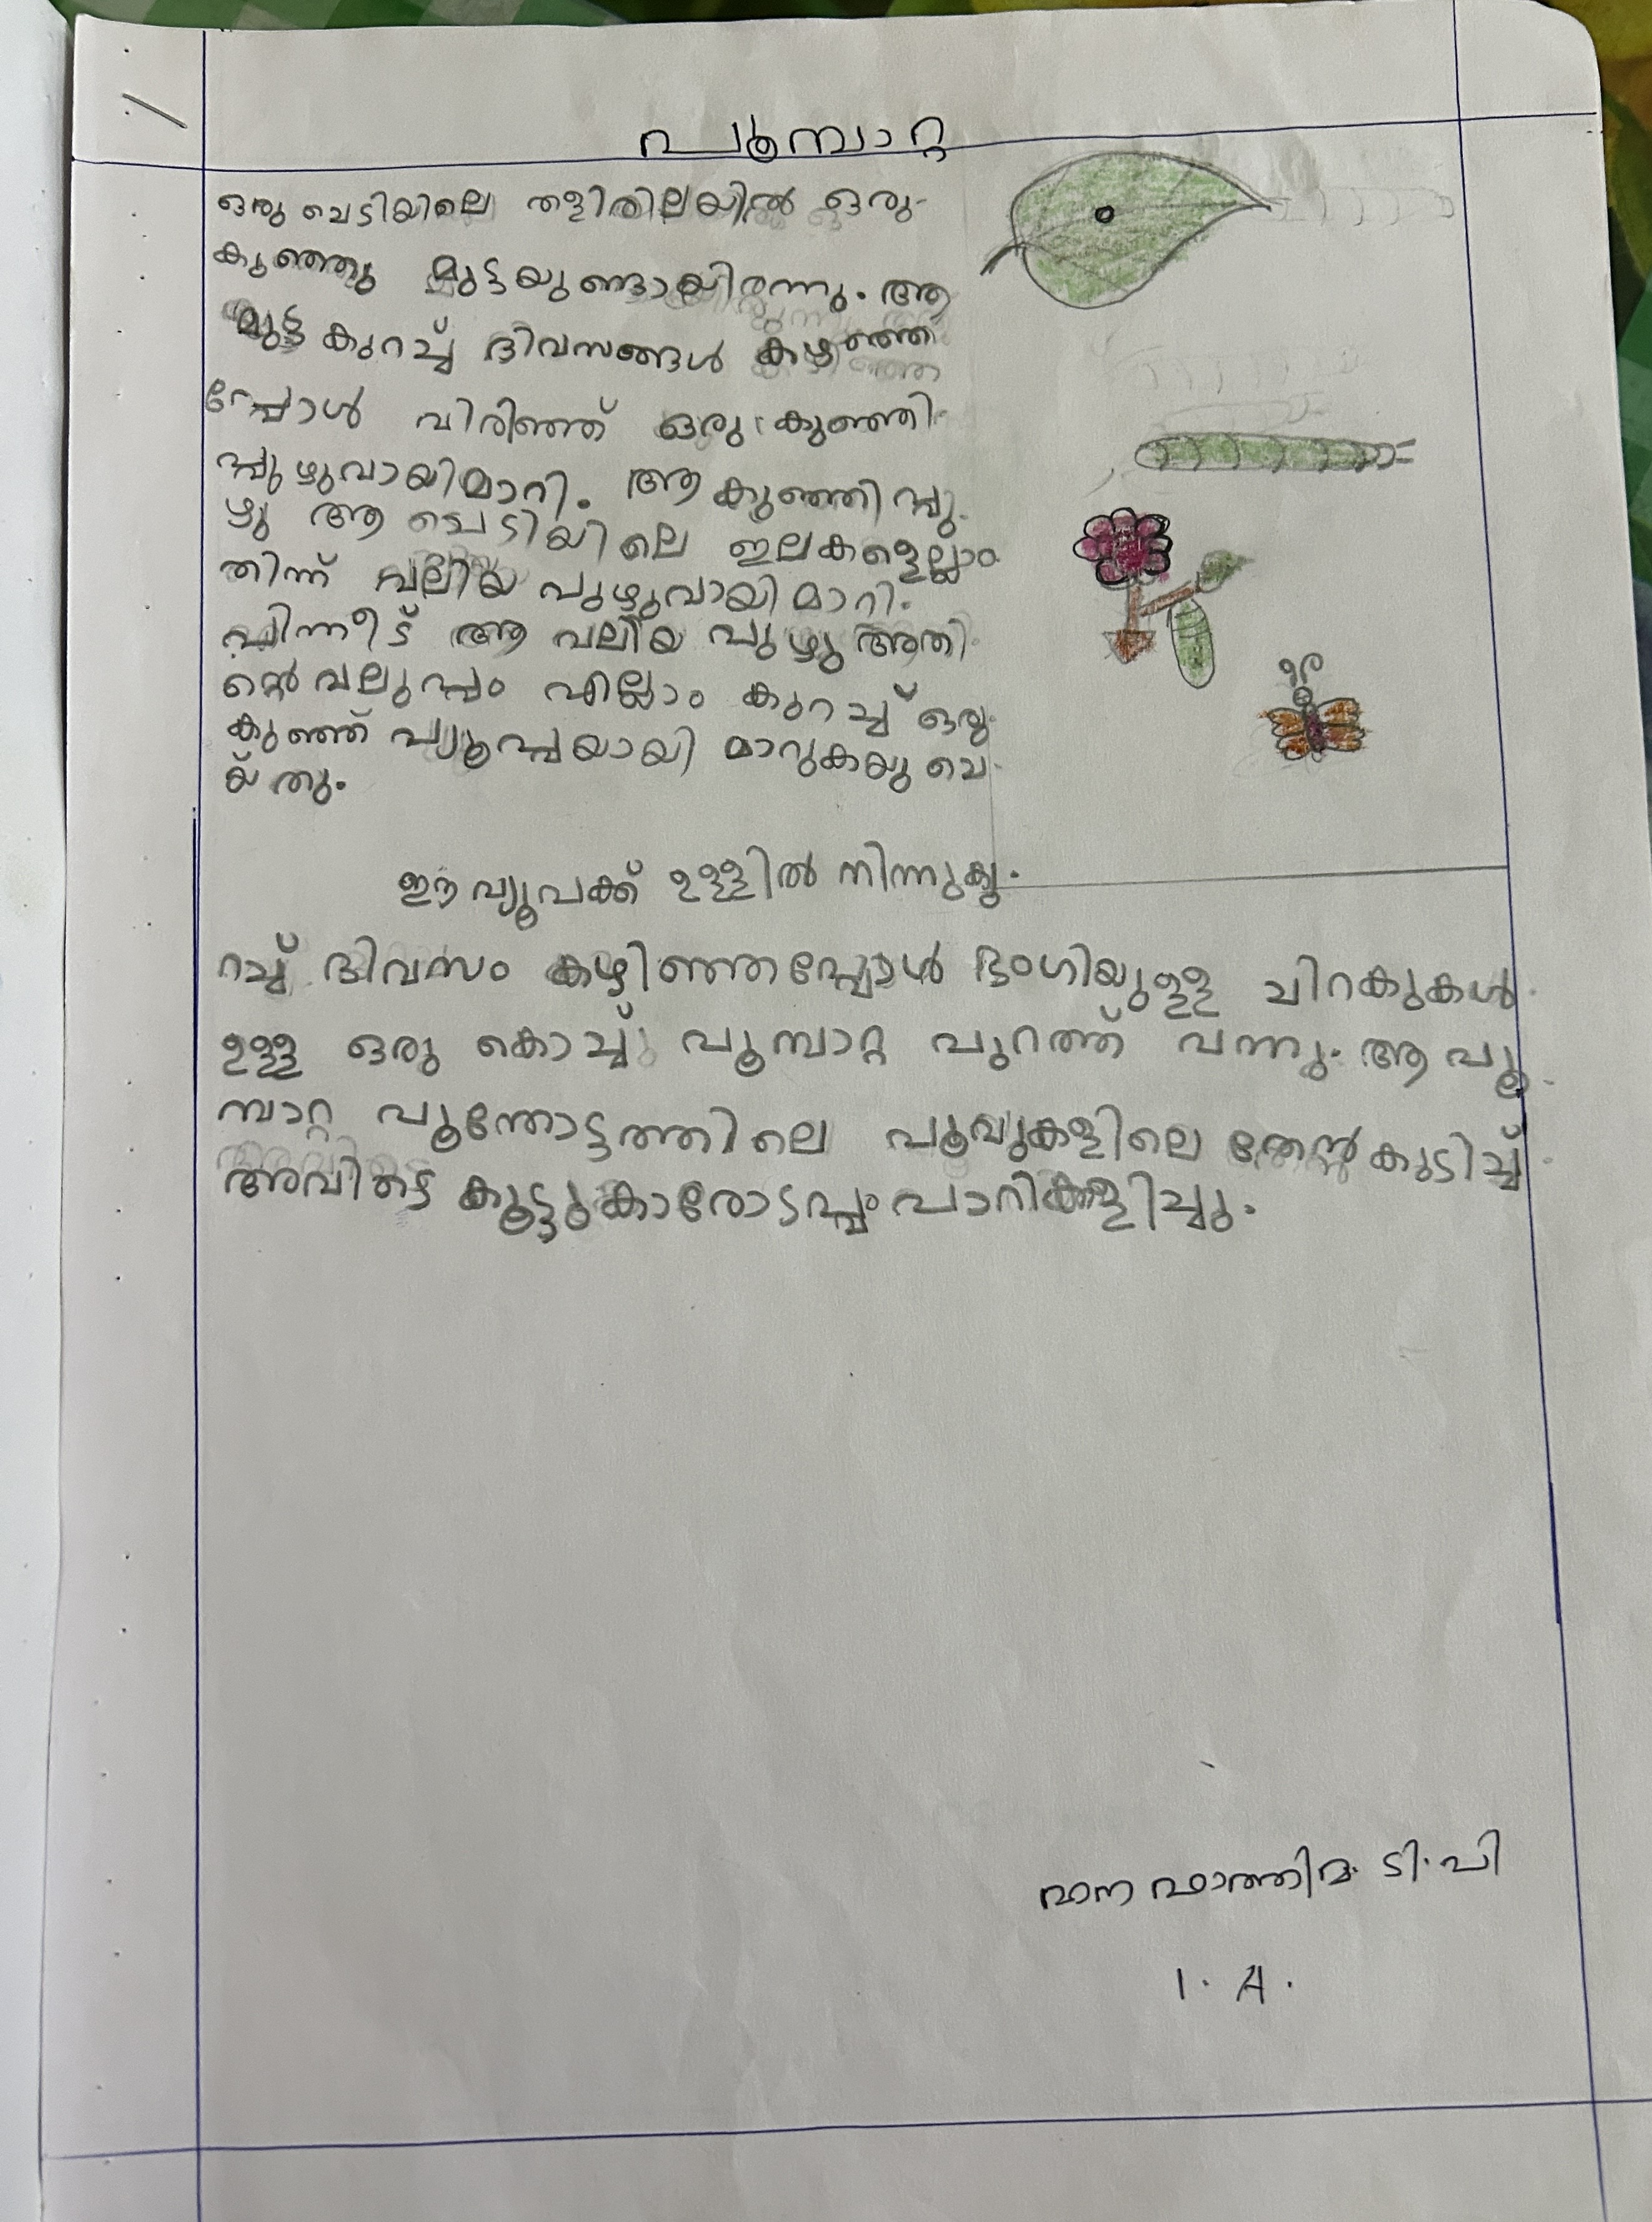 പൂമ്പാറ്റ
ഒരു ചെടിയിലെ തളിരിലയിൽ ഒരു
കുഞ്ഞു മുട്ടയുണ്ടായിരുന്നു. ആ
മുട്ട കുറച്ച് ദിവസങ്ങൾ കഴിഞ്ഞ
പ്പോൾ വിരിഞ്ഞ് ഒരു കുഞ്ഞി
പ്പുഴുവായിമാറി. ആ കുഞ്ഞിപ്പു
ഴു ആ ചെടിയിലെ ഇലകളെല്ലാം
തിന്ന് വലിയ പുഴുവായി മാറി.
പിന്നീട് ആ വലിയ പുഴു അതി
ന്റെ വലുപ്പം എല്ലാം കുറച്ച് ഒരു
കുഞ്ഞ് പ്യൂപ്പയായി മാറുകയു ചെ
യ്തു.
ഈ പ്യൂപക്ക് ഉള്ളിൽ നിന്നുകു
റച്ച് ദിവസം കഴിഞ്ഞപ്പോൾ ഭംഗിയുള്ള ചിറകുകൾ
ഉള്ള ഒരു കൊച്ചു പൂമ്പാറ്റ പുറത്ത് വന്നു. ആ പൂ
മ്പാറ്റ പൂന്തോട്ടത്തിലെ പൂവുകളിലെ തേൻ കുടിച്ച്
അവിടെ കൂട്ടുകാരോടപ്പം പാറിക്കളിച്ചു.
ഫാത്തിമ ടി.പി
1. A.